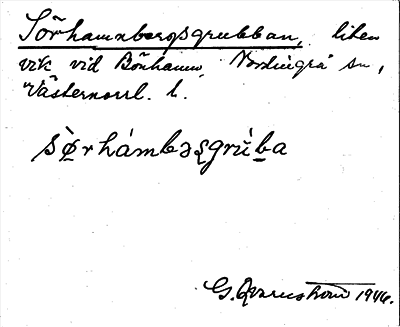 Sörhamnbergsgrubban, liten
vik vid Bönhamn, Nordingrå sn,
Västernorrl. l.
sø̀rhámbəsgrùba
G. Qvarnström 1946.